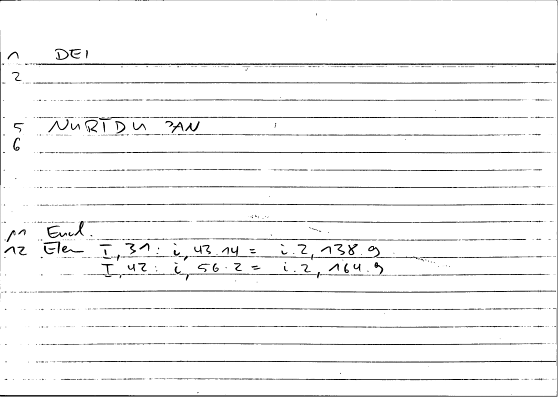 1 DEI
2
5 NURTDU ?AN
6
11 Eucl.
12 Elem I, 31: i, 43.14 = i.2, 138.9
I, 42: i, 56.2 = i.2, 164.9